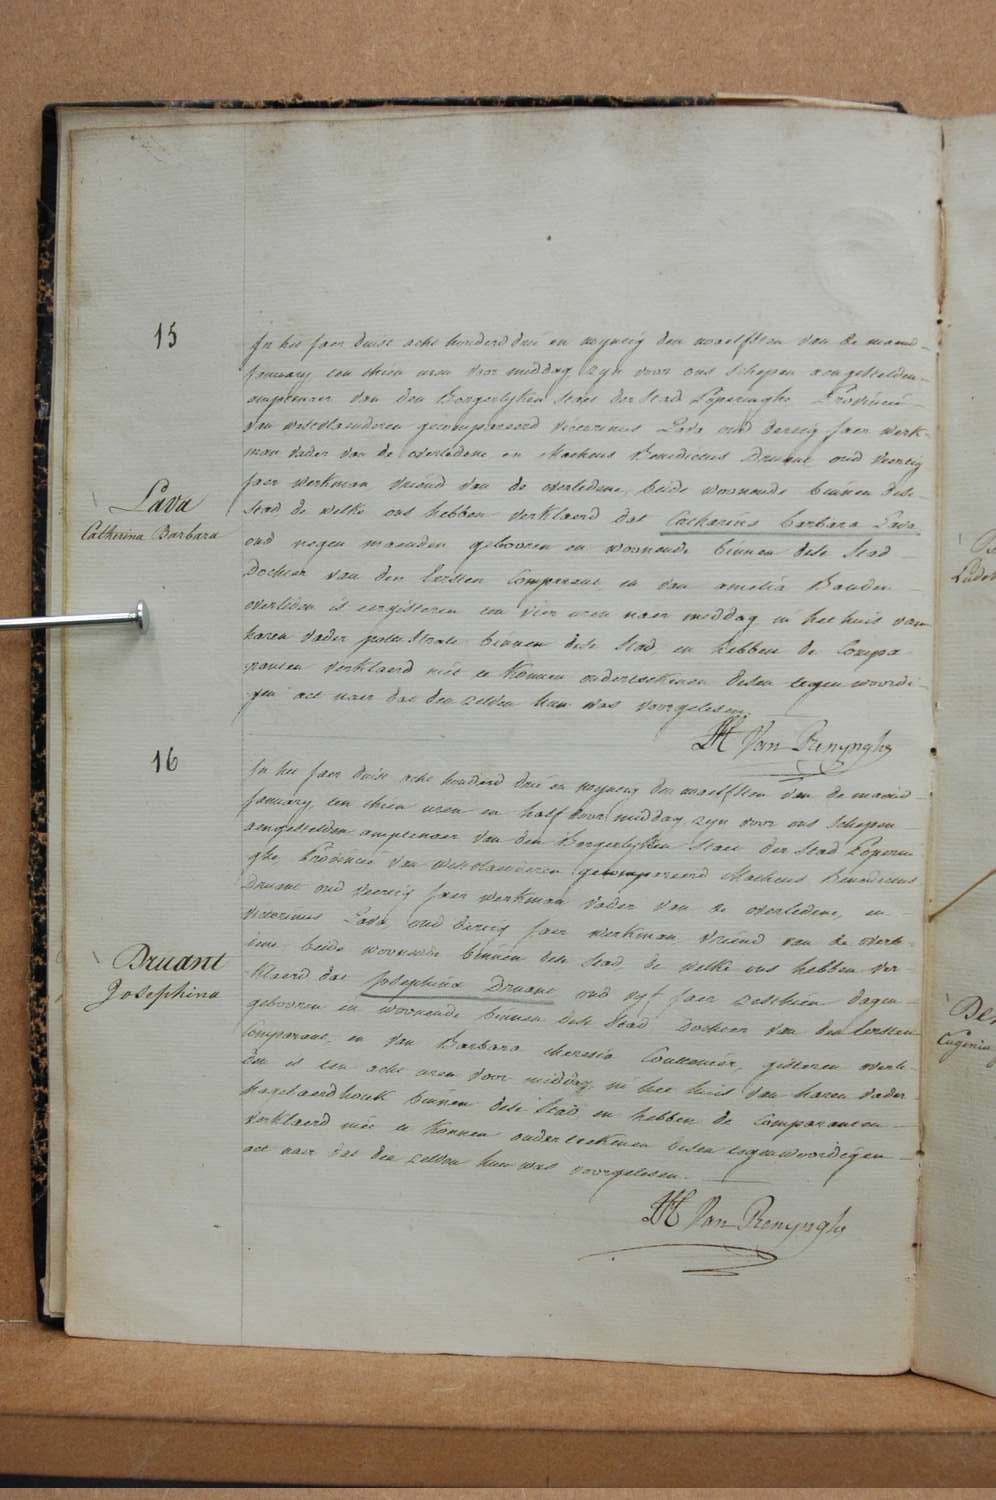 15
In het jaer duist acht honderd drie en vyftig den twaelfsten van de maend
January ten thien uren voor middag zyn voor ons schepen aengestelden
amptenaer van den Borgerlyken staet der stad Poperinghe Provincie
van westvlaenderen gecompareerd victorinus Lava oud dertig jaer werk-
man vader van de overledene en Matheus Benedictus Druant oud veertig
jaer werkman vriend van de overledene, beide woonende binnen dese
Lava
stad de welke ons hebben verklaerd dat Catharina barbara Lava
Catherina Barbara
oud negen maenden gebooren en woonende binnen dese stad
Dochter van den Eersten Comparant en van amelia Bauden
overleden is eergisteren ten vier uren naer middag in het huis van
haren vader potte strate binnen dese stad en hebben de Compa
ranten verklaerd niet te konnen onderteekenen desen tegenwoordi-
gen act naer dat den zelven hun was voorgelesen.
Van Renynghe
16
In het jaer duist acht honderd drie en vyftig den twaelfsten van de maend
January ten thien uren en half voor middag zyn voor ons schepen
aengestelden amptenaer van den Borgerlyken staet der stad Poperin
ghe Provincie van westvlaenderen gecompareerd Matheus Benedictus
Druant oud veertig jaer werkman vader van de overledene, en
victorinus Lava, oud dertig jaer werkman, vriend van de overle-
dene, beide woonende binnen dese stad, de welke ons hebben ver-
Druant
klaerd dat Josephina Druant oud vyf jaer zesthien dagen
Josephina
gebooren en woonende binnen dese stad Dochter van den Eersten
Comparant, en van Barbara theresia Couttenier, gisteren overle-
den is ten acht uren voor middag in het huis van haren vader
hagebaerdhoek binnen dese stad, en hebben de Comparanten
verklaerd niet te konnen onderteekenen desen tegenwoordigen
act naer dat den zelven hun was voorgelesen.
Van Renynghe